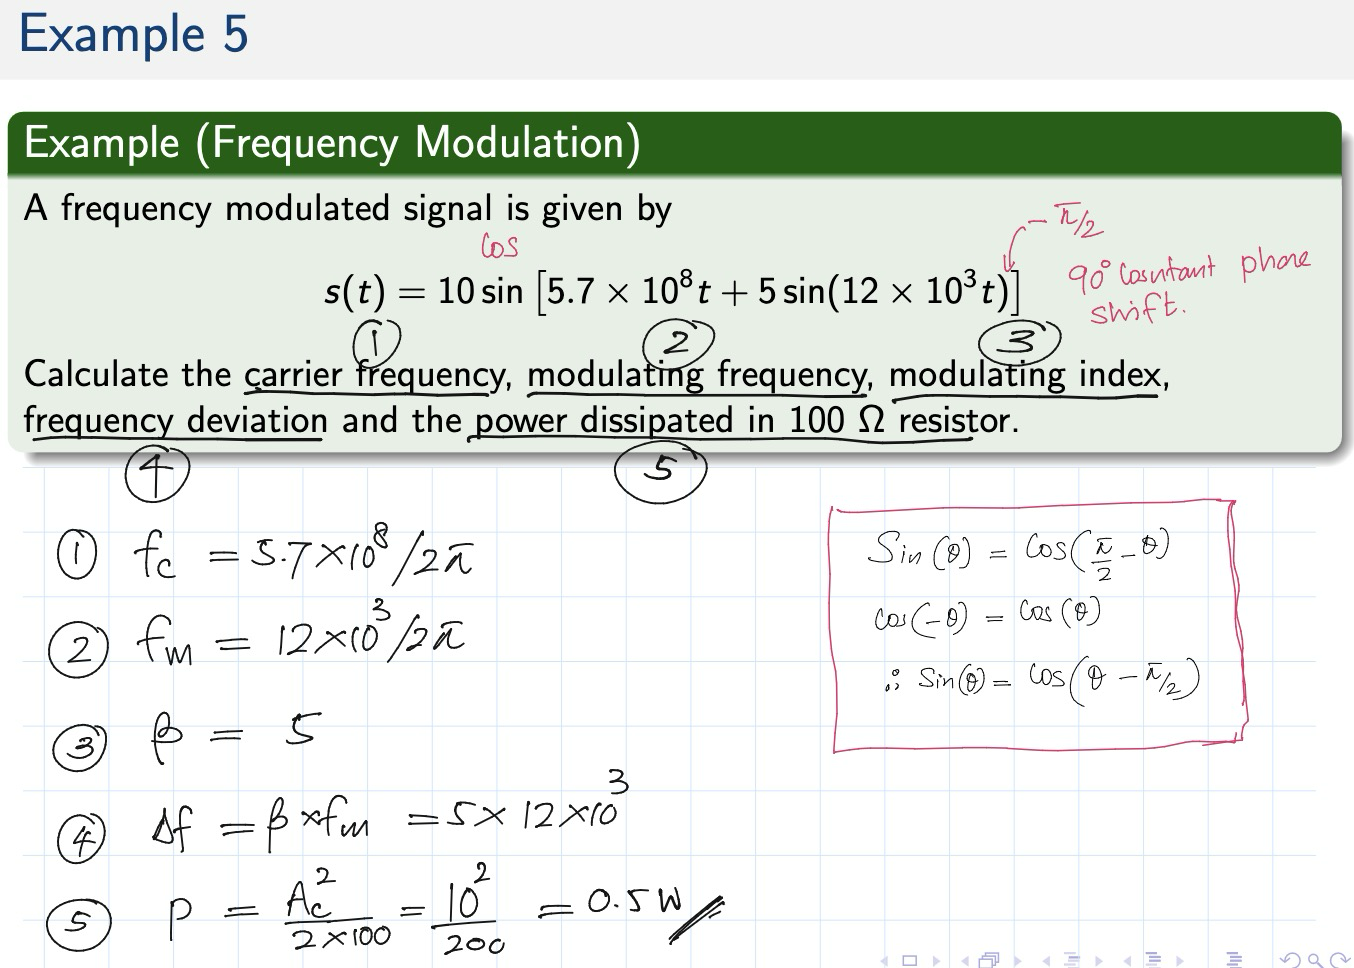 Example 5
Example (Frequency Modulation)
A frequency modulated signal is given by
cos
- π/2
s(t) = 10 sin [5.7 × 10⁸t + 5 sin(12 × 10³t)]
90° Cosntant phase
shift.
① ② ③
Calculate the carrier frequency, modulating frequency, modulating index,
frequency deviation and the power dissipated in 100 Ω resistor.
④ ⑤
① fc = 5.7×10⁸/2π
② fm = 12×10³/2π
③ β = 5
④ Δf = β×fm = 5×12×10³
⑤ P = Ac²/2×100 = 10²/200 = 0.5W
Sin(θ) = Cos(π/2 - θ)
Cos(-θ) = Cos(θ)
∴ Sin(θ) = Cos(θ - π/2)